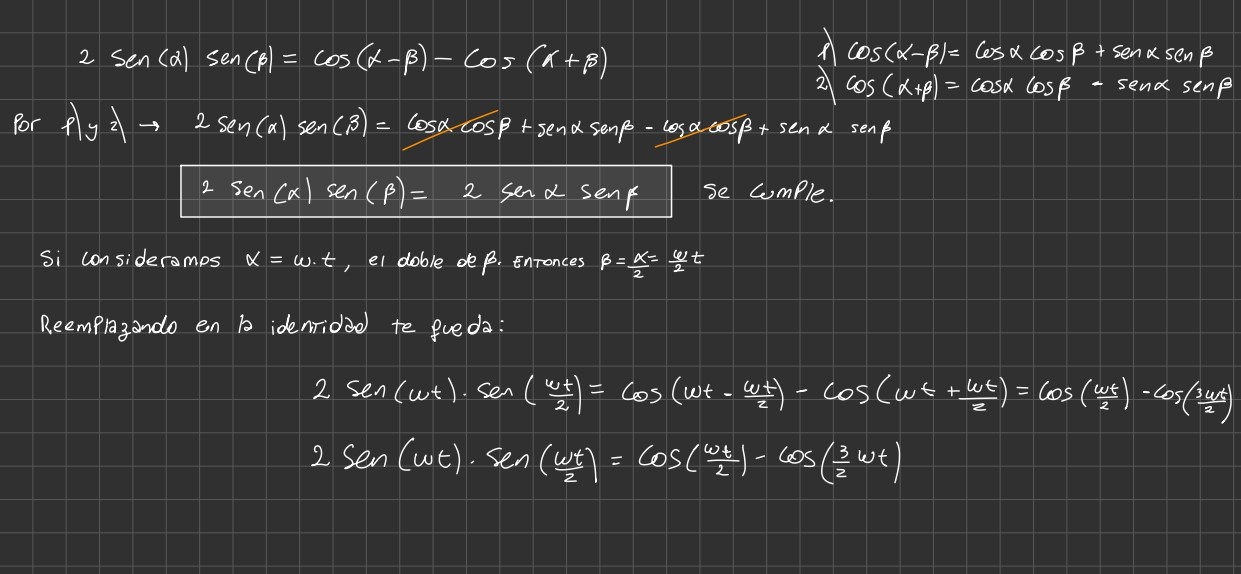 2 sen(α) sen(β) = cos(α-β) - cos(α+β)
1) cos(α-β) = cosα cosβ + senα senβ
2) cos(α+β) = cosα cosβ - senα senβ
Por 1) y 2) → 2 sen(α) sen(β) = cosα cosβ + senα senβ - cosα cosβ + senα senβ
2 sen(α) sen(β) = 2 senα senβ se cumple.
Si consideramos α = w.t, el doble de β. Entonces β = α/2 = w/2 t
Reemplazando en la identidad te queda:
2 sen(wt). sen(wt/2) = cos(wt - wt/2) - cos(wt + wt/2) = cos(wt/2) - cos(3wt/2)
2 sen(wt). sen(wt/2) = cos(wt/2) - cos(3/2 wt)